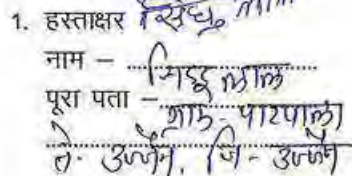 1. हस्ताक्षर सिद्धु लाल
नाम – सिद्धु लाल
पूरा पता – ग्राम - पाटपाला
ते. उज्जैन, जि - उज्जैन